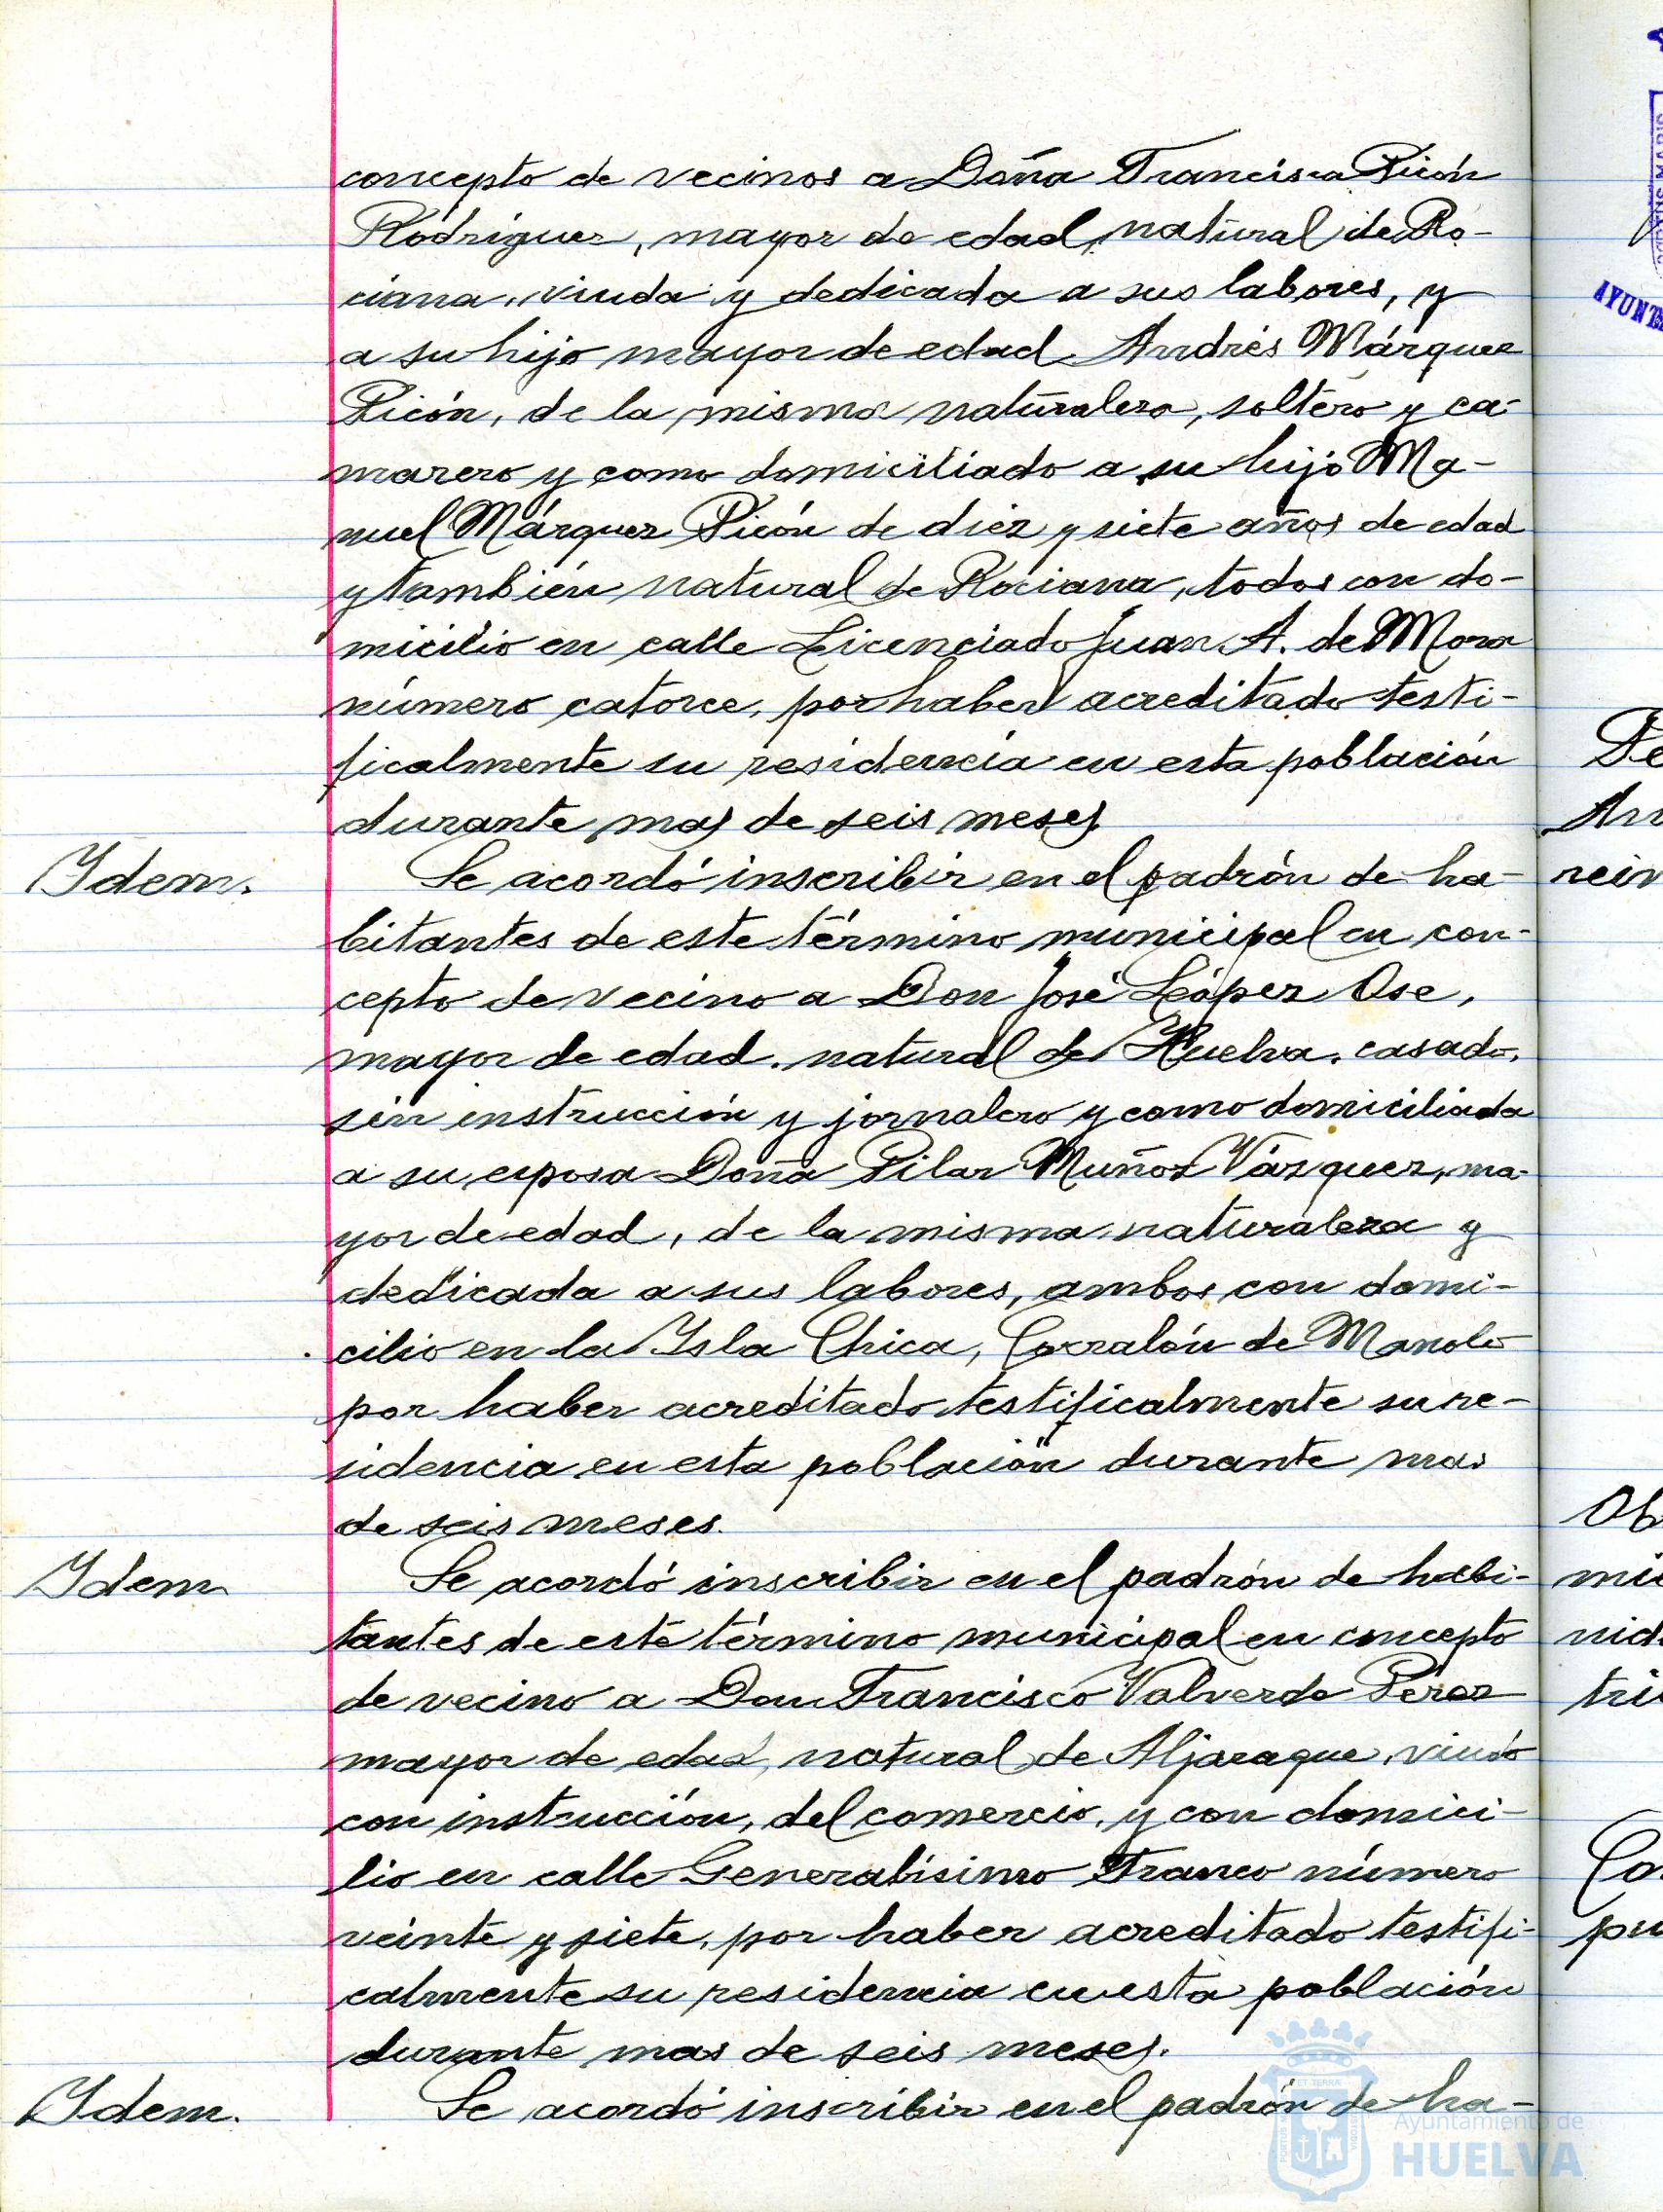 concepto de vecinos a Doña Francisca Picón
Rodríguez, mayor de edad, natural de Ro-
ciana, viuda y dedicada a sus labores, y
a su hijo mayor de edad Andrés Márquez
Picón, de la misma naturaleza, soltero y ca-
marero y como domiciliado a su hijo Ma-
nuel Márquez Picón de diez y siete años de edad
y también natural de Rociana, todos con do-
micilio en calle Licenciado Juan A. de Mora
número catorce, por haber acreditado testi-
ficalmente su residencia en esta población
durante mas de seis meses
Ydem. Se acordó inscribir en el padrón de ha-
bitantes de este término municipal en con-
cepto de vecino a Don José López Ose,
mayor de edad, natural de Huelva, casado,
sin instrucción y jornalero y como domiciliada
a su esposa Doña Pilar Muñoz Vázquez, ma-
yor de edad, de la misma naturaleza y
dedicada a sus labores, ambos con domi-
cilio en la Ysla Chica, Corralón de Manolo
por haber acreditado testificalmente su re-
sidencia en esta población durante mas
de seis meses.
Ydem Se acordó inscribir en el padrón de habi-
tantes de este término municipal en concepto
de vecino a Don Francisco Valverde Pérez
mayor de edad, natural de Aljaraque, viudo
con instrucción, del comercio, y con domici-
lio en calle Generalísimo Franco número
veinte y siete, por haber acreditado testifi-
calmente su residencia en esta población
durante mas de seis meses.
Ydem. Se acordó inscribir en el padrón de ha-
Ayuntamiento de
HUELVA